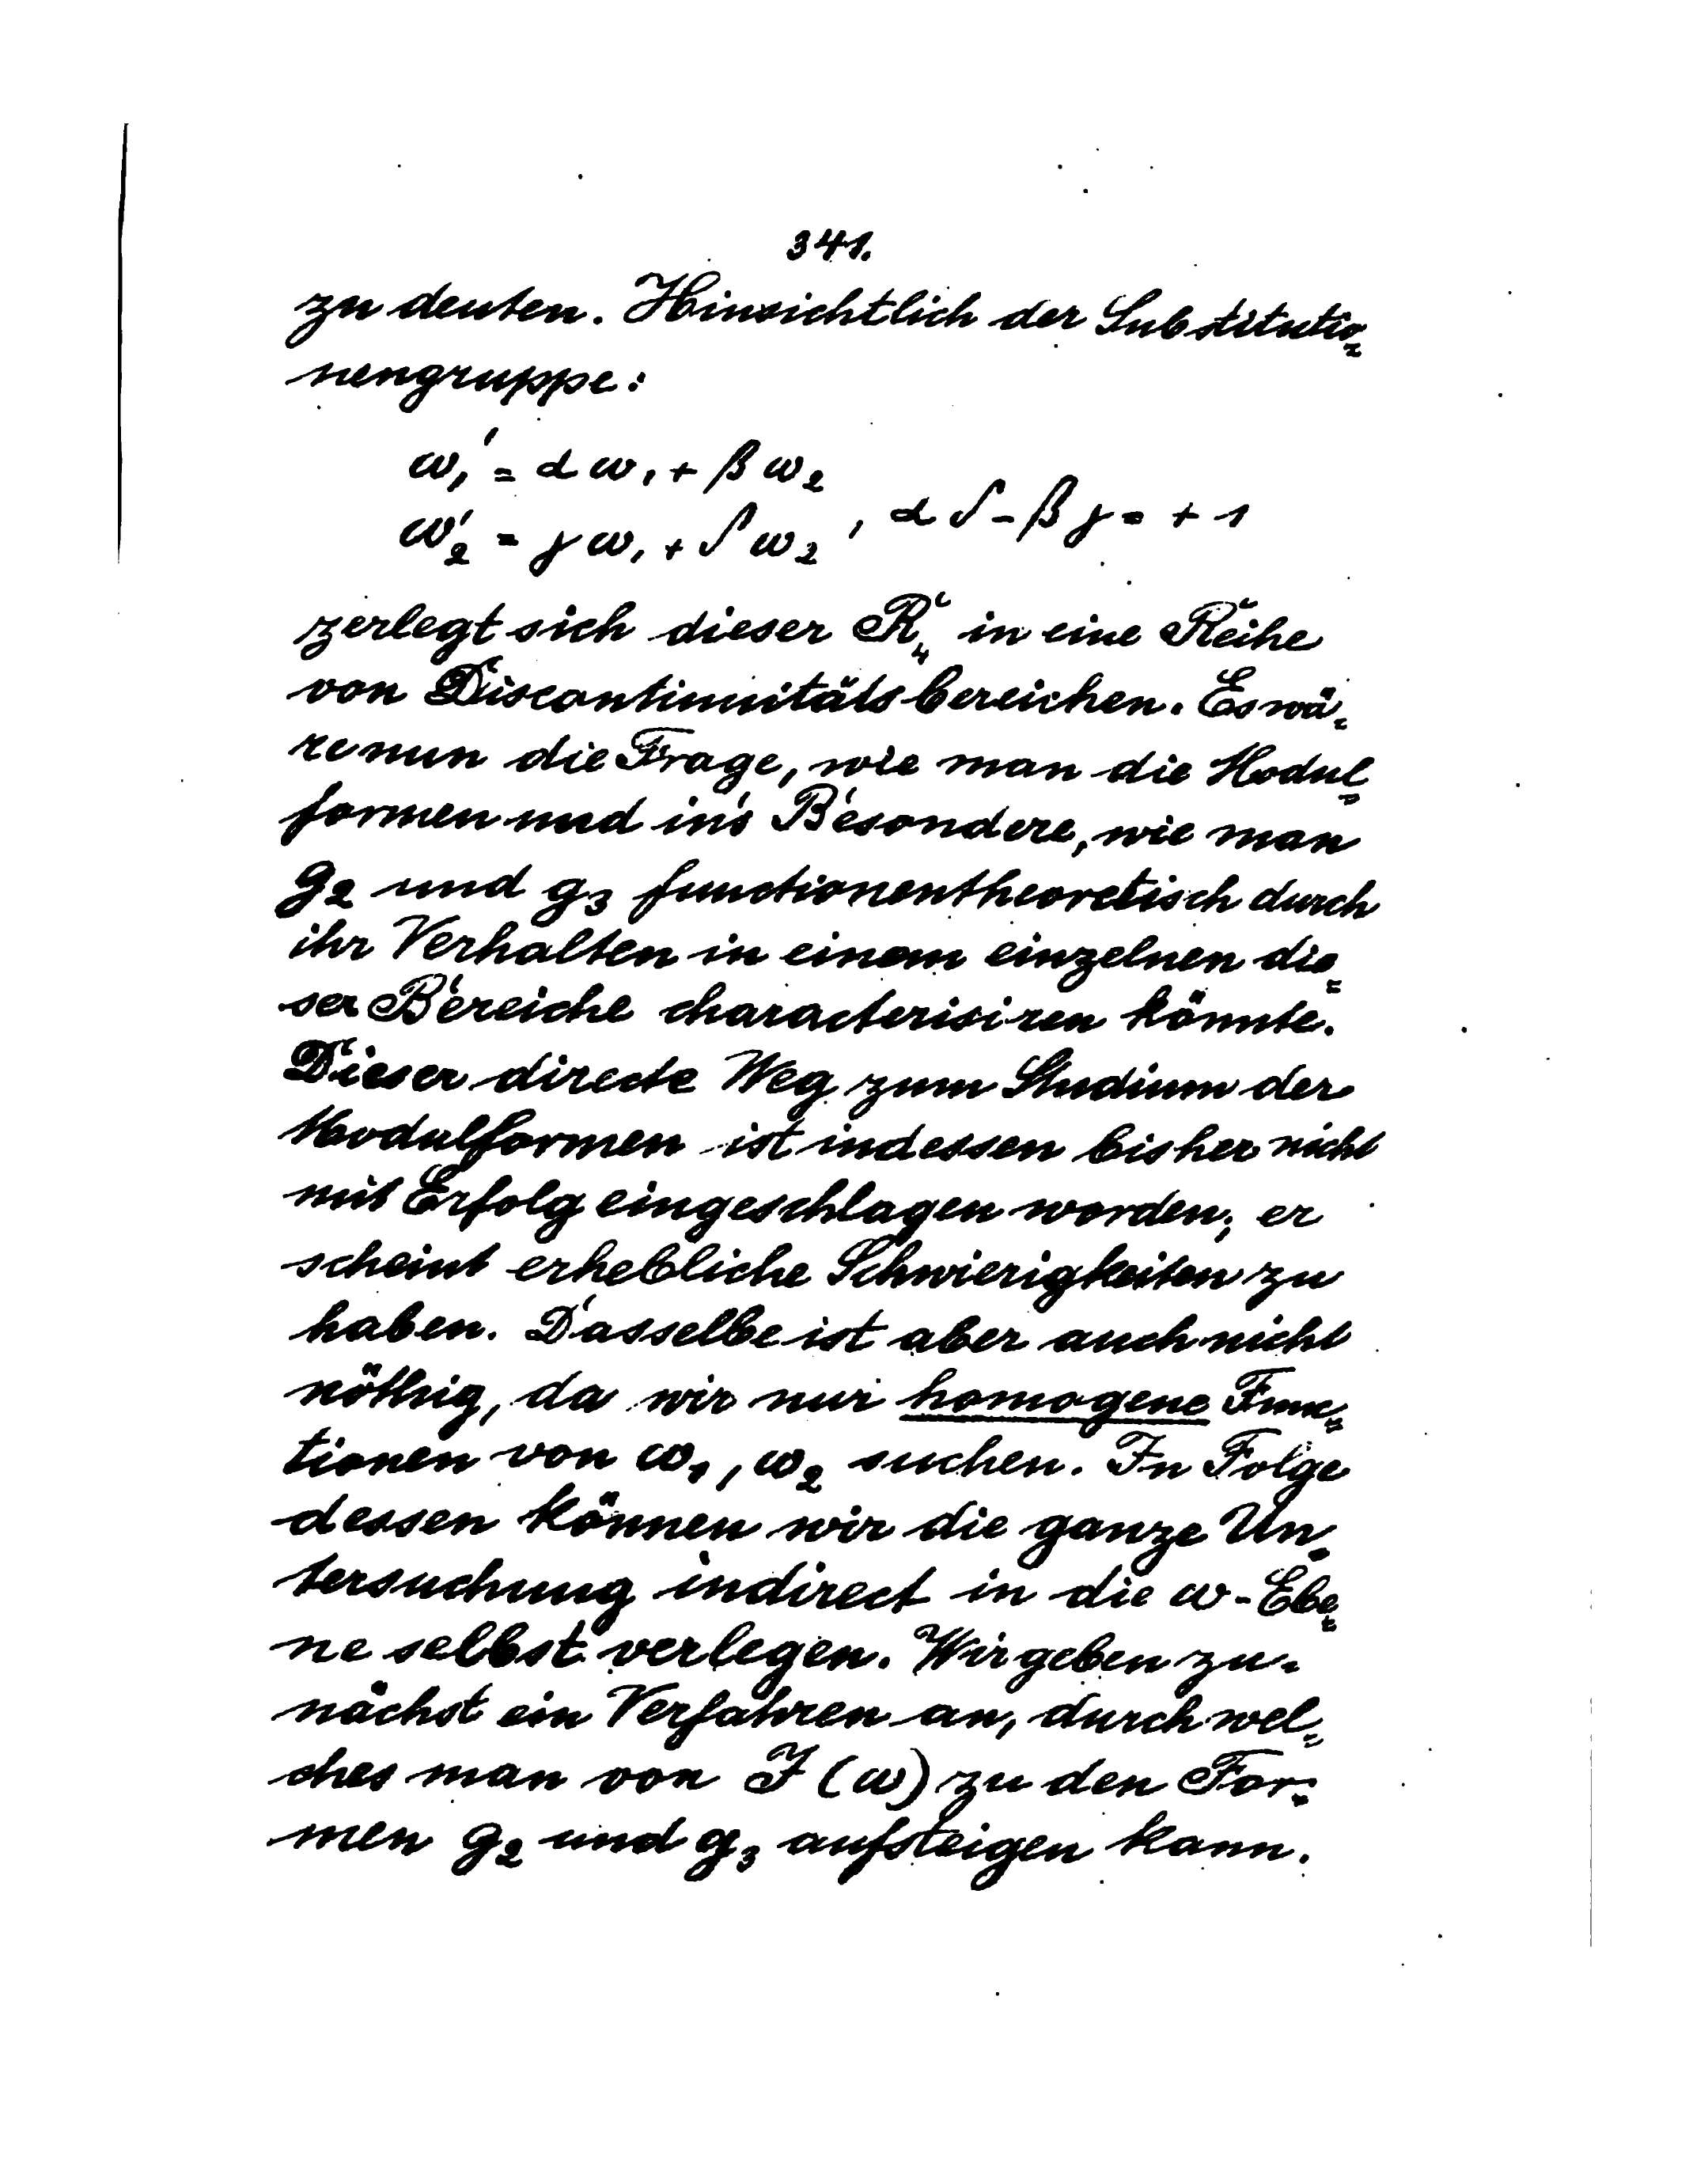 341.
zu deuten. Hinsichtlich der Substitutio=
nengruppe:
ω₁' = αω₁ + βω₂
ω₂' = γω₁ + δω₂ , αδ - βγ = +1
zerlegt sich dieser R₄ in eine Reihe
von Discontinuitätsbereichen. Es wä=
re nun die Frage, wie man die Modul=
formen und in's Besondere, wie man
g₂ und g₃ functionentheoretisch durch
ihr Verhalten in einem einzelnen die=
ser Bereiche characterisiren könnte.
Dieser directe Weg zum Studium der
Modulformen ist indessen bisher nicht
mit Erfolg eingeschlagen worden; er
scheint erhebliche Schwierigkeiten zu
haben. Dasselbe ist aber auch nicht
nöthig, da wir nur homogene Func=
tionen von ω₁, ω₂ suchen. In Folge
dessen können wir die ganze Un=
tersuchung indirect in die ω-Ebe=
ne selbst verlegen. Wir geben zu=
nächst ein Verfahren an, durch wel=
ches man von J(ω) zu den For=
men g₂ und g₃ aufsteigen kann.